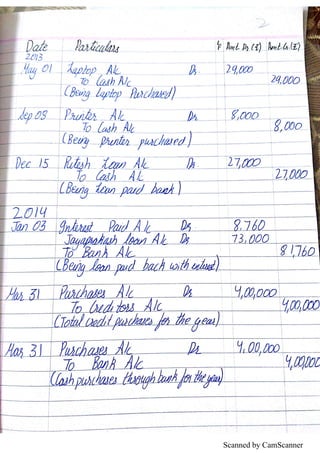 2
Date Particulars F Amt. Dr (₹) Amt. Cr (₹)
2013
May 01 Laptop A/c Dr 29,000
To Cash A/c 29,000
(Being Laptop Purchased)
Sep 08 Printer A/c Dr 8,000
To Cash A/c 8,000
(Being printer purchased)
Dec 15 Ritesh Loan A/c Dr 27,000
To Cash A/c 27,000
(Being Loan paid back)
2014
Jan 03 Interest Paid A/c Dr 8.760
Jayaprakash loan A/c Dr 73,000
To Bank A/c 81,760
(Being loan paid back with interest)
Mar 31 Purchases A/c Dr 4,00,000
To Creditors A/c 4,00,000
(Total credit purchases for the year)
Mar 31 Purchases A/c Dr 4,00,000
To Bank A/c 4,00,000
(Cash purchases through bank for the year)
Scanned by CamScanner